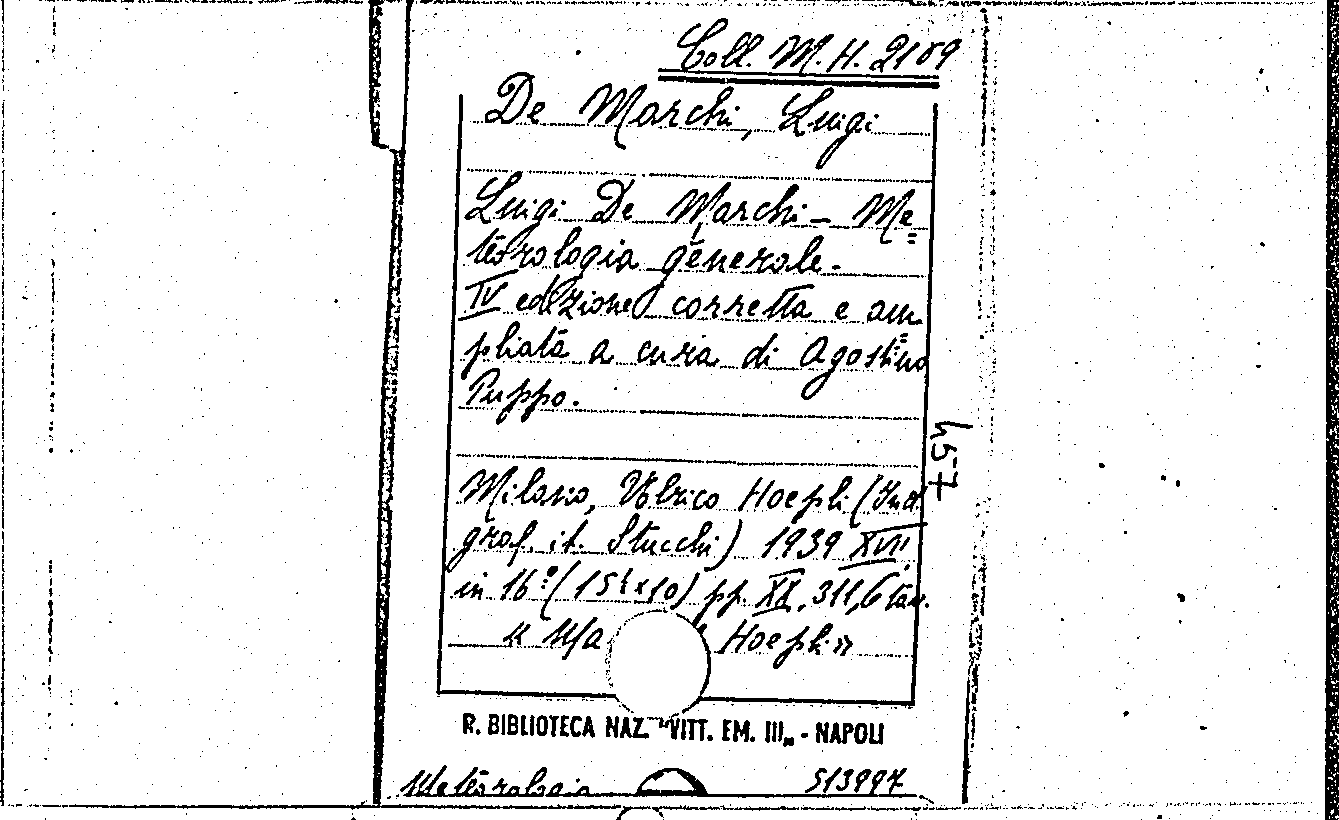 Coll. M. H. 2109
De Marchi, Luigi
Luigi De Marchi - Me=
teorologia generale.
IV edizione corretta e am=
pliata a cura di Agostino
Puppo.
457
Milano, Ulrico Hoepli (Ind.
graf. it. Stucchi) 1939 XVII
in 16º (15 x10) pp. XX, 311, 6 tav.
« Ma Hoepli»
R. BIBLIOTECA NAZ. "VITT. EM. III„ - NAPOLI
Meteorologia 513997